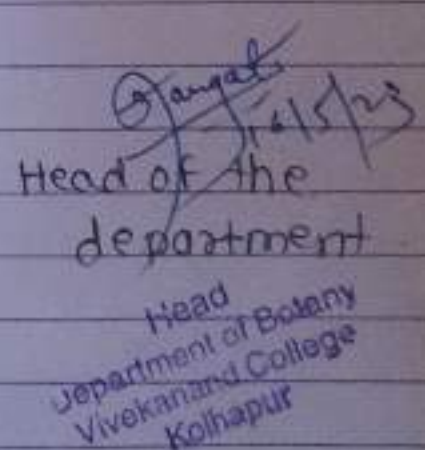 16/5/23
Head of the
department
Head
Department of Botany
Vivekanand College
Kolhapur